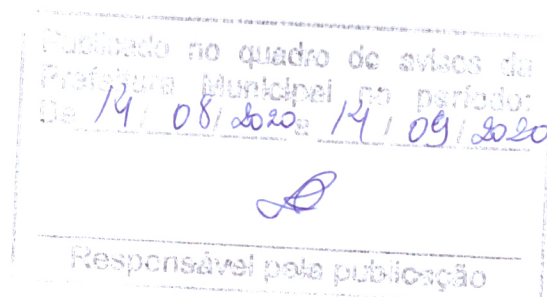 Publicado no quadro de avisos da
Prefeitura Municipal no período:
De 14 / 08 / 2020 a 14 / 09 / 2020
Responsável pela publicação